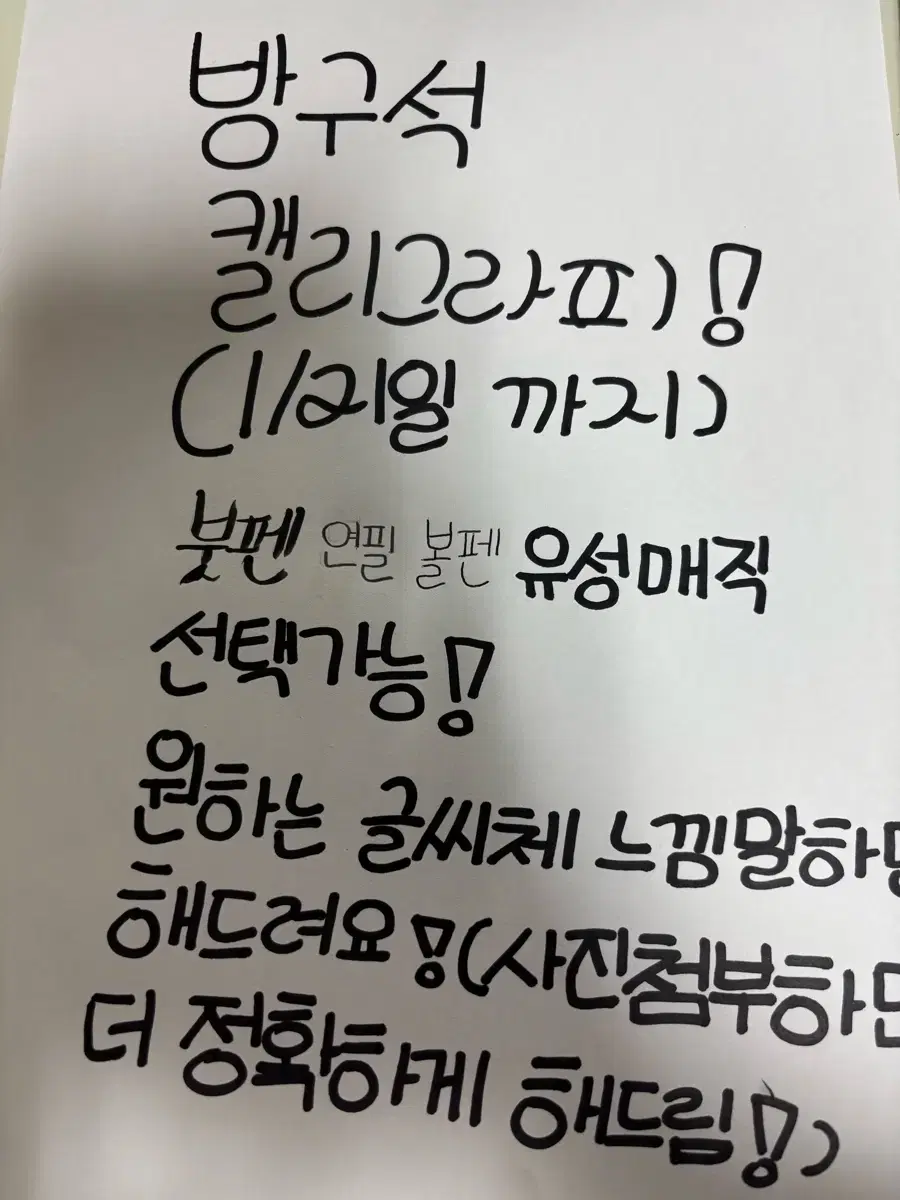 방구석
캘리그라피!
(1/21일 까지)
붓펜 연필 볼펜 유성매직
선택가능!
원하는 글씨체 느낌말하면
해드려요!(사진첨부하면
더 정확하게 해드림!)